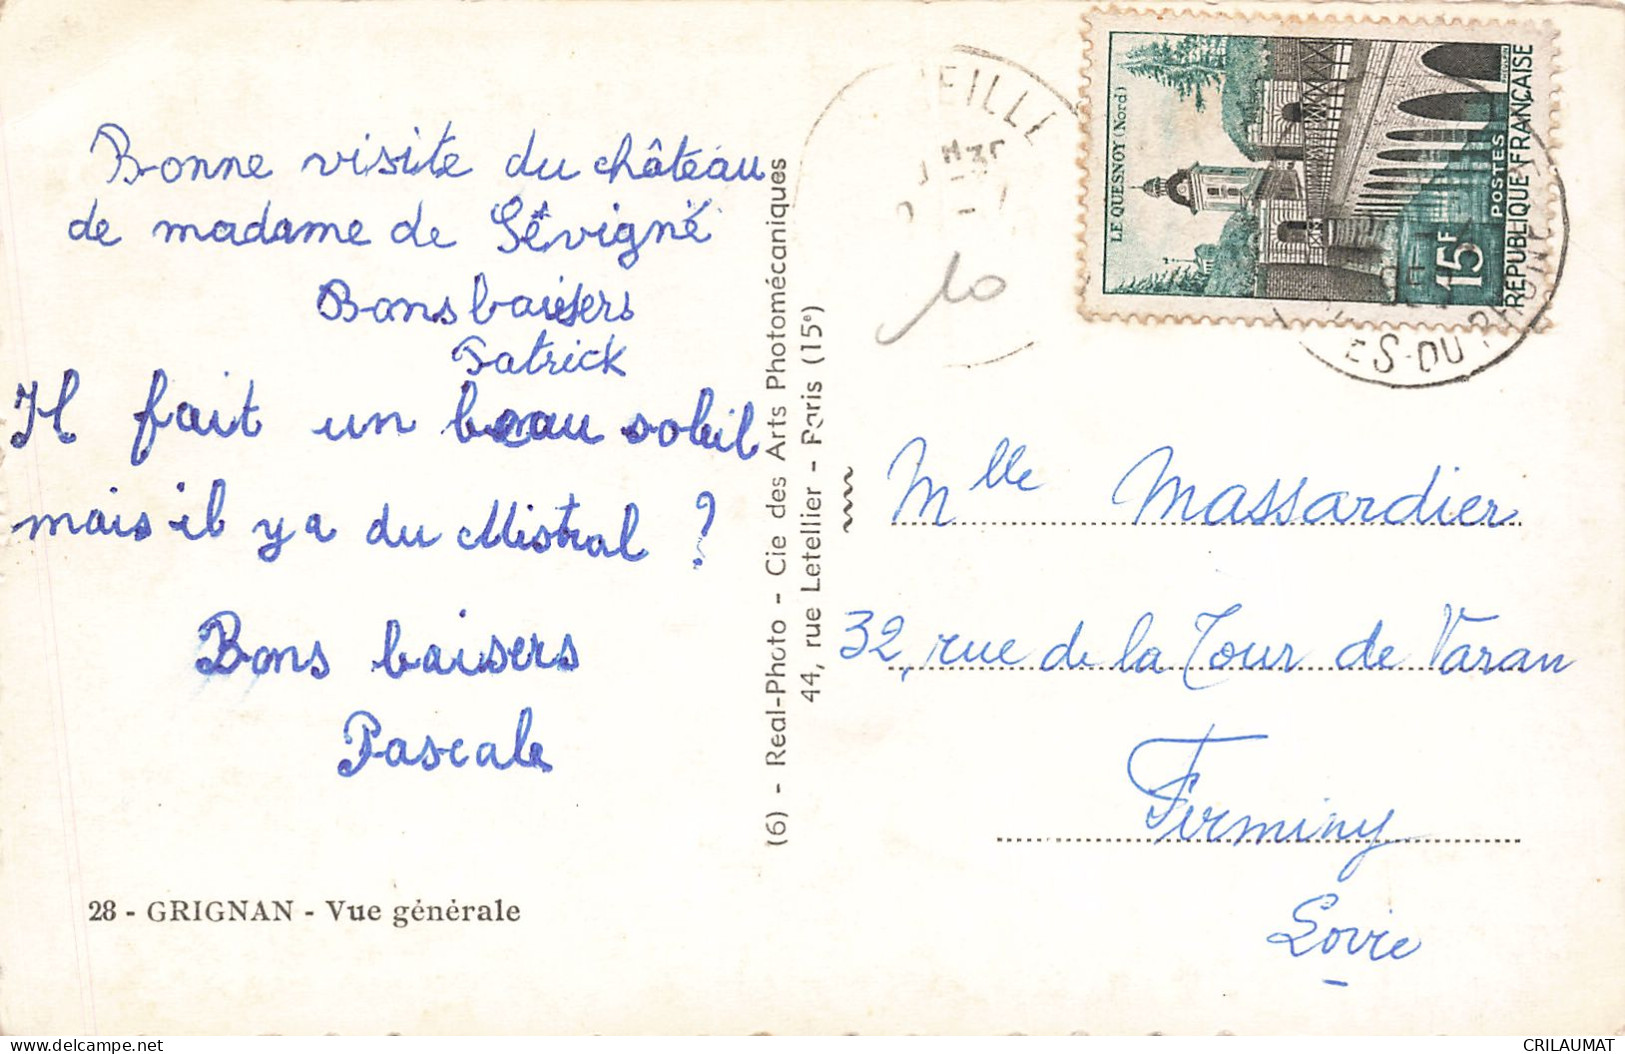 Bonne visite du château
de madame de Sévigné
Bons baisers
Patrick
Il fait un beau soleil
mais il y a du Mistral ?
Bons baisers
Pascale
28 - GRIGNAN - Vue générale
(6) - Real-Photo - Cie des Arts Photomécaniques
44, rue Letellier - Paris (15e)
10
LE QUESNOY (Nord)
15F
POSTES
RÉPUBLIQUE FRANÇAISE
EILLE
ES-DU-RHONE
Mlle Massardier
32, rue de la Tour de Varan
Firminy
Loire
CRILAUMAT